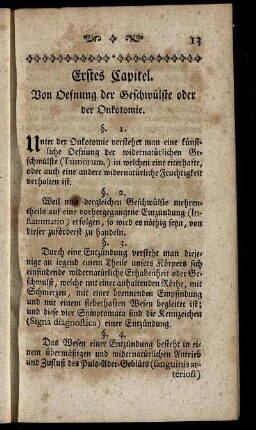 13
Erstes Capitel.
Von Oefnung der Geschwülste oder
der Onkotomie.
§. 1.
Unter der Onkotomie verstehet man eine künst-
liche Oefnung der widernatürlichen Ge-
schwülste (Tumorum,) in welchen eine eiterhafte,
oder auch eine andere widernatürliche Feuchtigkeit
verhalten ist.
§. 2.
Weil nun dergleichen Geschwülste mehren-
theils auf eine vorhergegangene Entzündung (In-
flammatio) erfolgen, so wird es nöthig seyn, von
dieser zuförderst zu handeln.
§. 3.
Durch eine Entzündung verstehe man dieje-
nige an irgend einem Theile unsers Körpers sich
einfindende widernatürliche Erhabenheit oder Ge-
schwulst, welche mit einer anhaltenden Röthe, mit
Schmerzen, mit einer brennenden Empfindung
und mit einem fieberhaften Wesen begleitet ist;
und diese vier Symptomata sind die Kennzeichen
(Signa diagnostica) einer Entzündung.
§. 4.
Das Wesen einer Entzündung besteht in
einem übermäßigen und widernatürlichen Antrieb
und Zufluß des Puls-Ader-Geblüts (sanguinis ar-
teriosi)